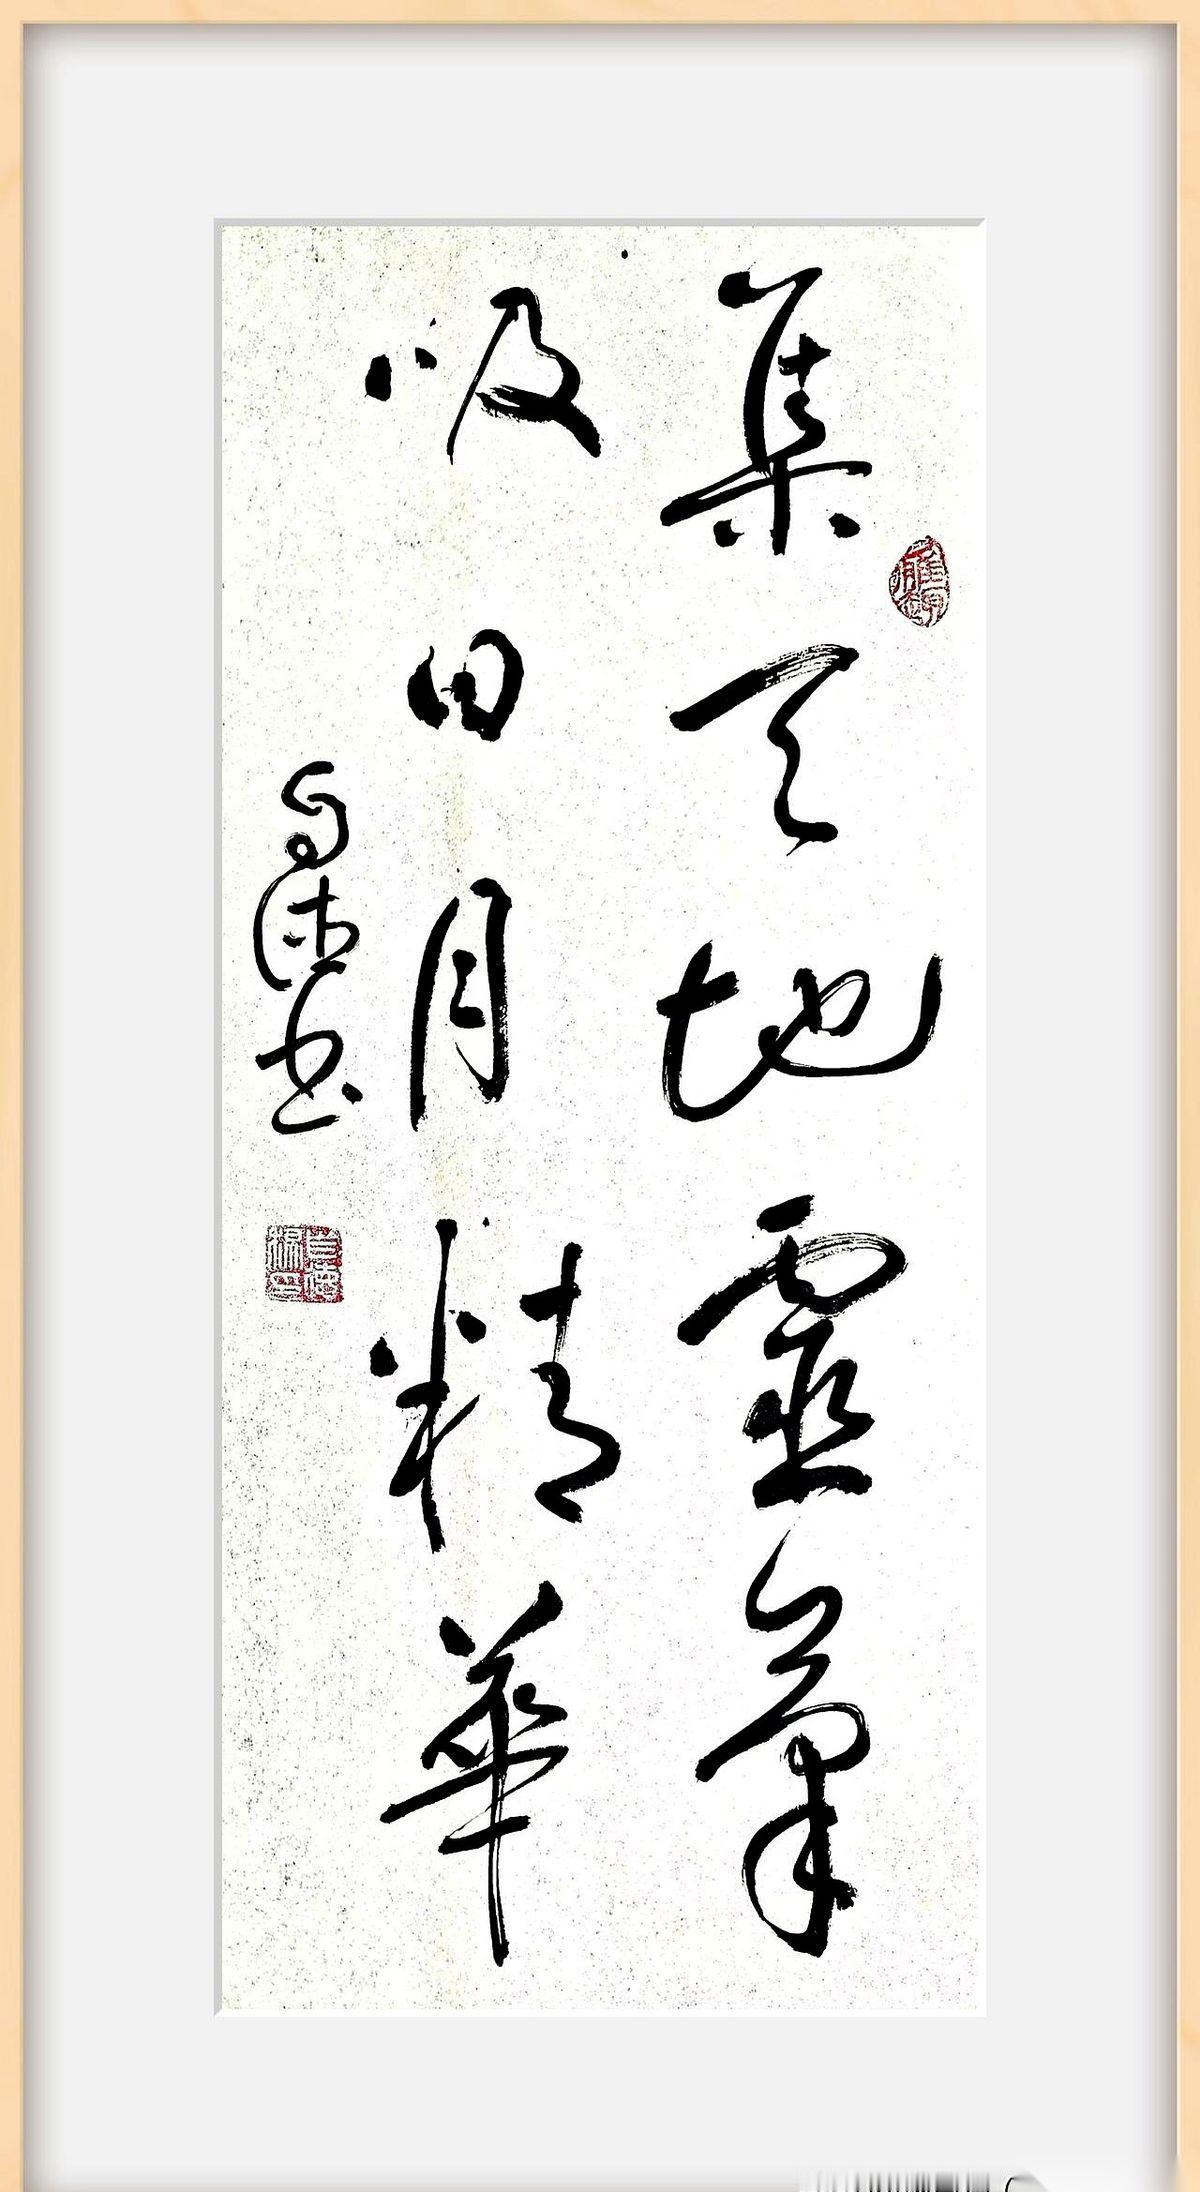 集天地靈氣
吸日月精華